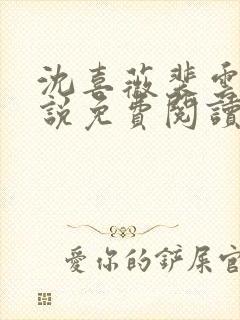 沈喜薇裴雲
說免費閱讀
愛你的鏟屎官